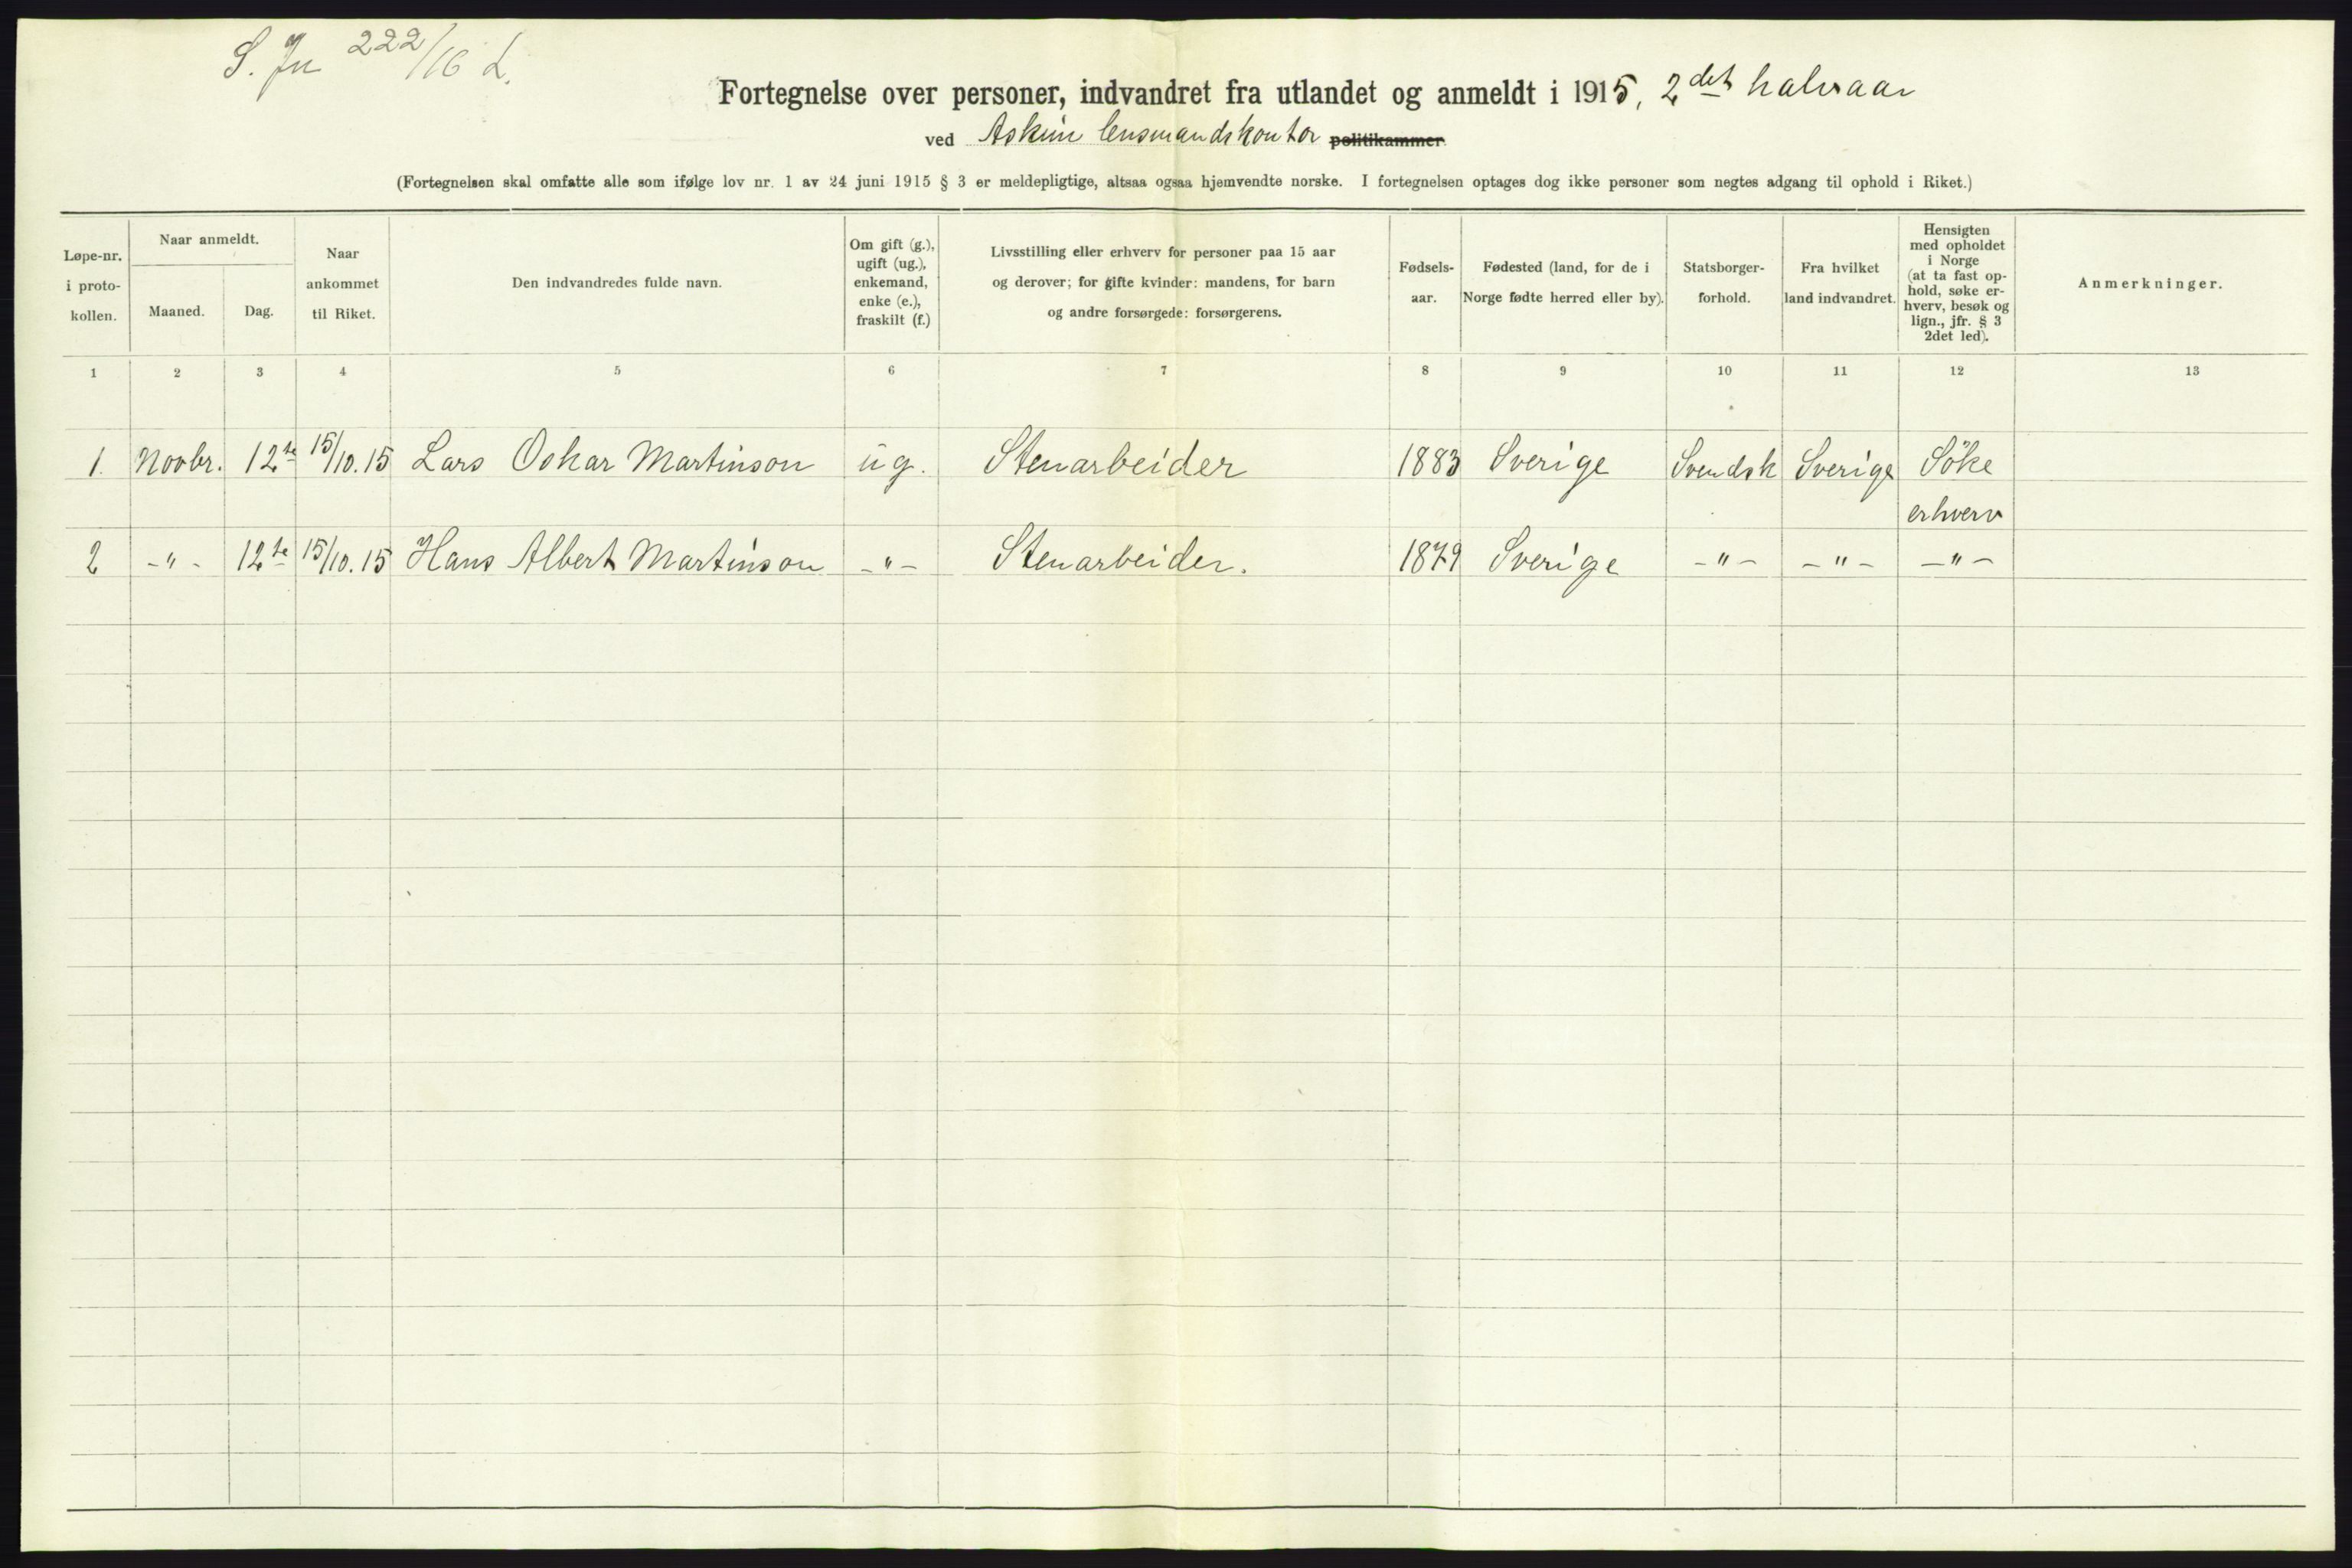 S. Jn 222/16 L.
Fortegnelse over personer, indvandret fra utlandet og anmeldt i 1915, 2det halvaar
ved Askim lensmandskontor politikammer
(Fortegnelsen skal omfatte alle som ifølge lov nr. 1 av 24 juni 1915 § 3 er meldepligtige, altsaa ogsaa hjemvendte norske. I fortegnelsen optages dog ikke personer som negtes adgang til ophold i Riket.)
Løpe-nr.
i proto-
kollen.
Naar anmeldt.
Maaned.
Dag.
Naar
ankommet
til Riket.
Den indvandredes fulde navn.
Om gift (g.),
ugift (ug.),
enkemand,
enke (e.),
fraskilt (f.)
Livsstilling eller erhverv for personer paa 15 aar
og derover; for gifte kvinder: mandens, for barn
og andre forsørgede: forsørgerens.
Fødsels-
aar.
Fødested (land, for de i
Norge fødte herred eller by).
Statsborger-
forhold.
Fra hvilket
land indvandret.
Hensigten
med opholdet
i Norge
(at ta fast op-
hold, søke er-
hverv, besøk og
lign., jfr. § 3
2det led).
Anmerkninger.
1 2 3 4 5 6 7 8 9 10 11 12 13
1. Novbr. 12te 15/10.15 Lars Oskar Martinson ug. Stenarbeider 1883 Sverige Svendsk Sverige Söke
erhverv
2 -"- 12te 15/10.15 Hans Albert Martinson -"- Stenarbeider. 1879 Sverige -"- -"- -"-